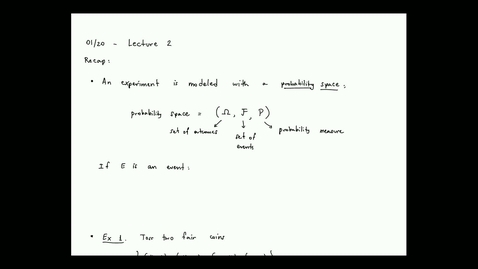 01/20 - Lecture 2
Recap:
• An experiment is modeled with a probability space:
probability space = (Ω, F, P)
set of outcomes set of events probability measure
If E is an event:
• Ex 1. Toss two fair coins